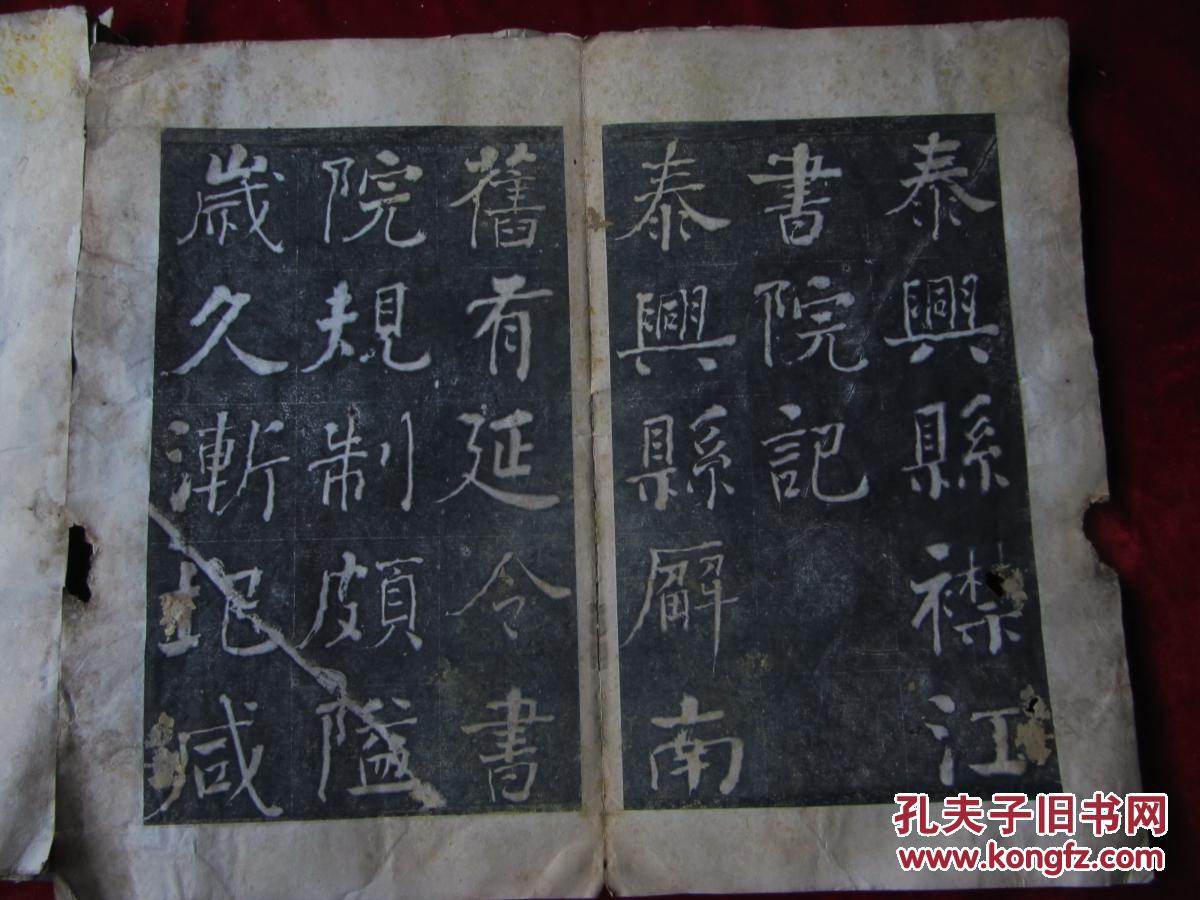 泰興縣襟江
書院記
泰興縣廨南
舊有延令書
院規制頗隘
歲久漸圮咸
孔夫子旧书网
www.kongfz.com